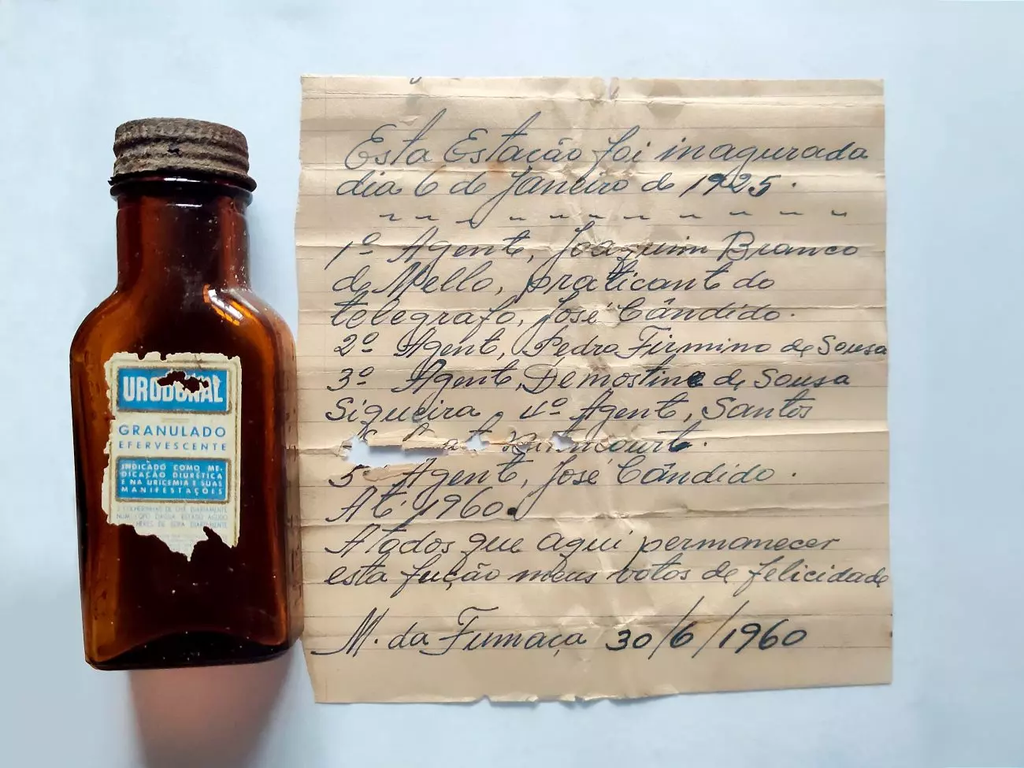 URODONAL
GRANULADO
EFERVESCENTE
INDICADO COMO ME-
DICAÇÃO DIURÉTICA
E NA URICEMIA E SUAS
MANIFESTAÇÕES
Esta Estação foi inagurada
dia 6 de Janeiro de 1925.
1º Agente, Joaquim Branco
de Mello, praticante do
telegrafo, José Cândido.
2º Agente, Pedro Firmino de Sousa
3º Agente, Demostine de Sousa
Siqueira, 4º Agente, Santos
Bitencourt.
5º Agente, José Cândido.
Até 1960.
A todos que aqui permanecer
esta fução meus votos de felicidade
M. da Fumaça 30/6/1960